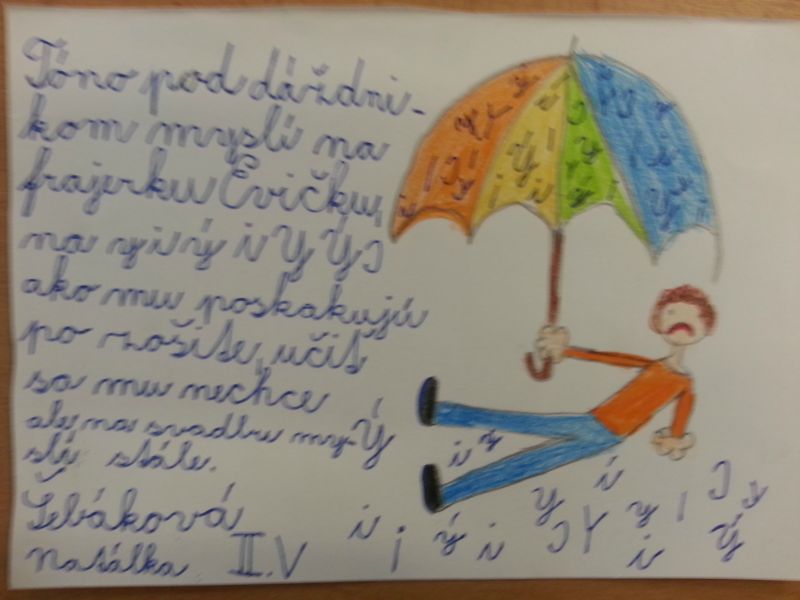 Tóno pod dáždni-
kom myslí na
frajerku Evičku,
na y i ý i Y Ý I
ako mu poskakujú
po zošite, učiť
sa mu nechce
aj na svadbu my-Ý
slí stále.
Šebáková
Natálka II.V